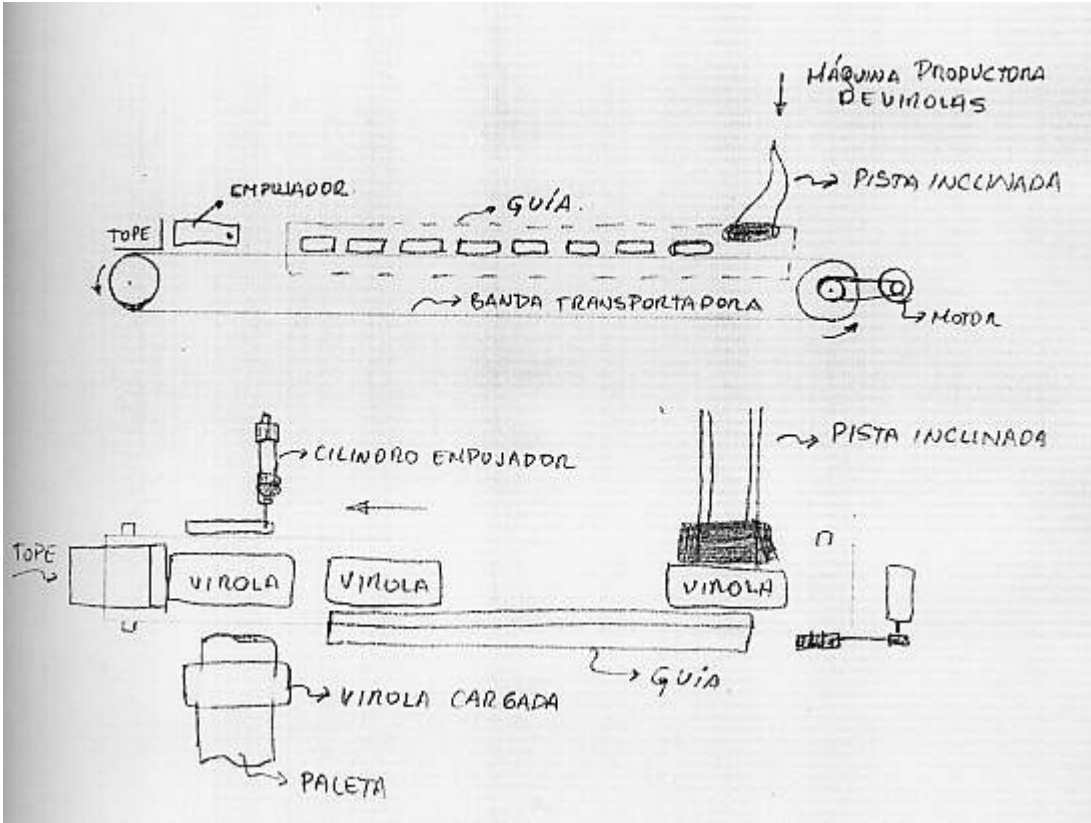 MÁQUINA PRODUCTORA
DE VIROLAS
PISTA INCLINADA
EMPUJADOR
GUÍA.
TOPE
BANDA TRANSPORTADORA
MOTOR
PISTA INCLINADA
CILINDRO EMPUJADOR
TOPE
VIROLA
VIROLA
VIROLA
GUÍA
VIROLA CARGADA
PALETA